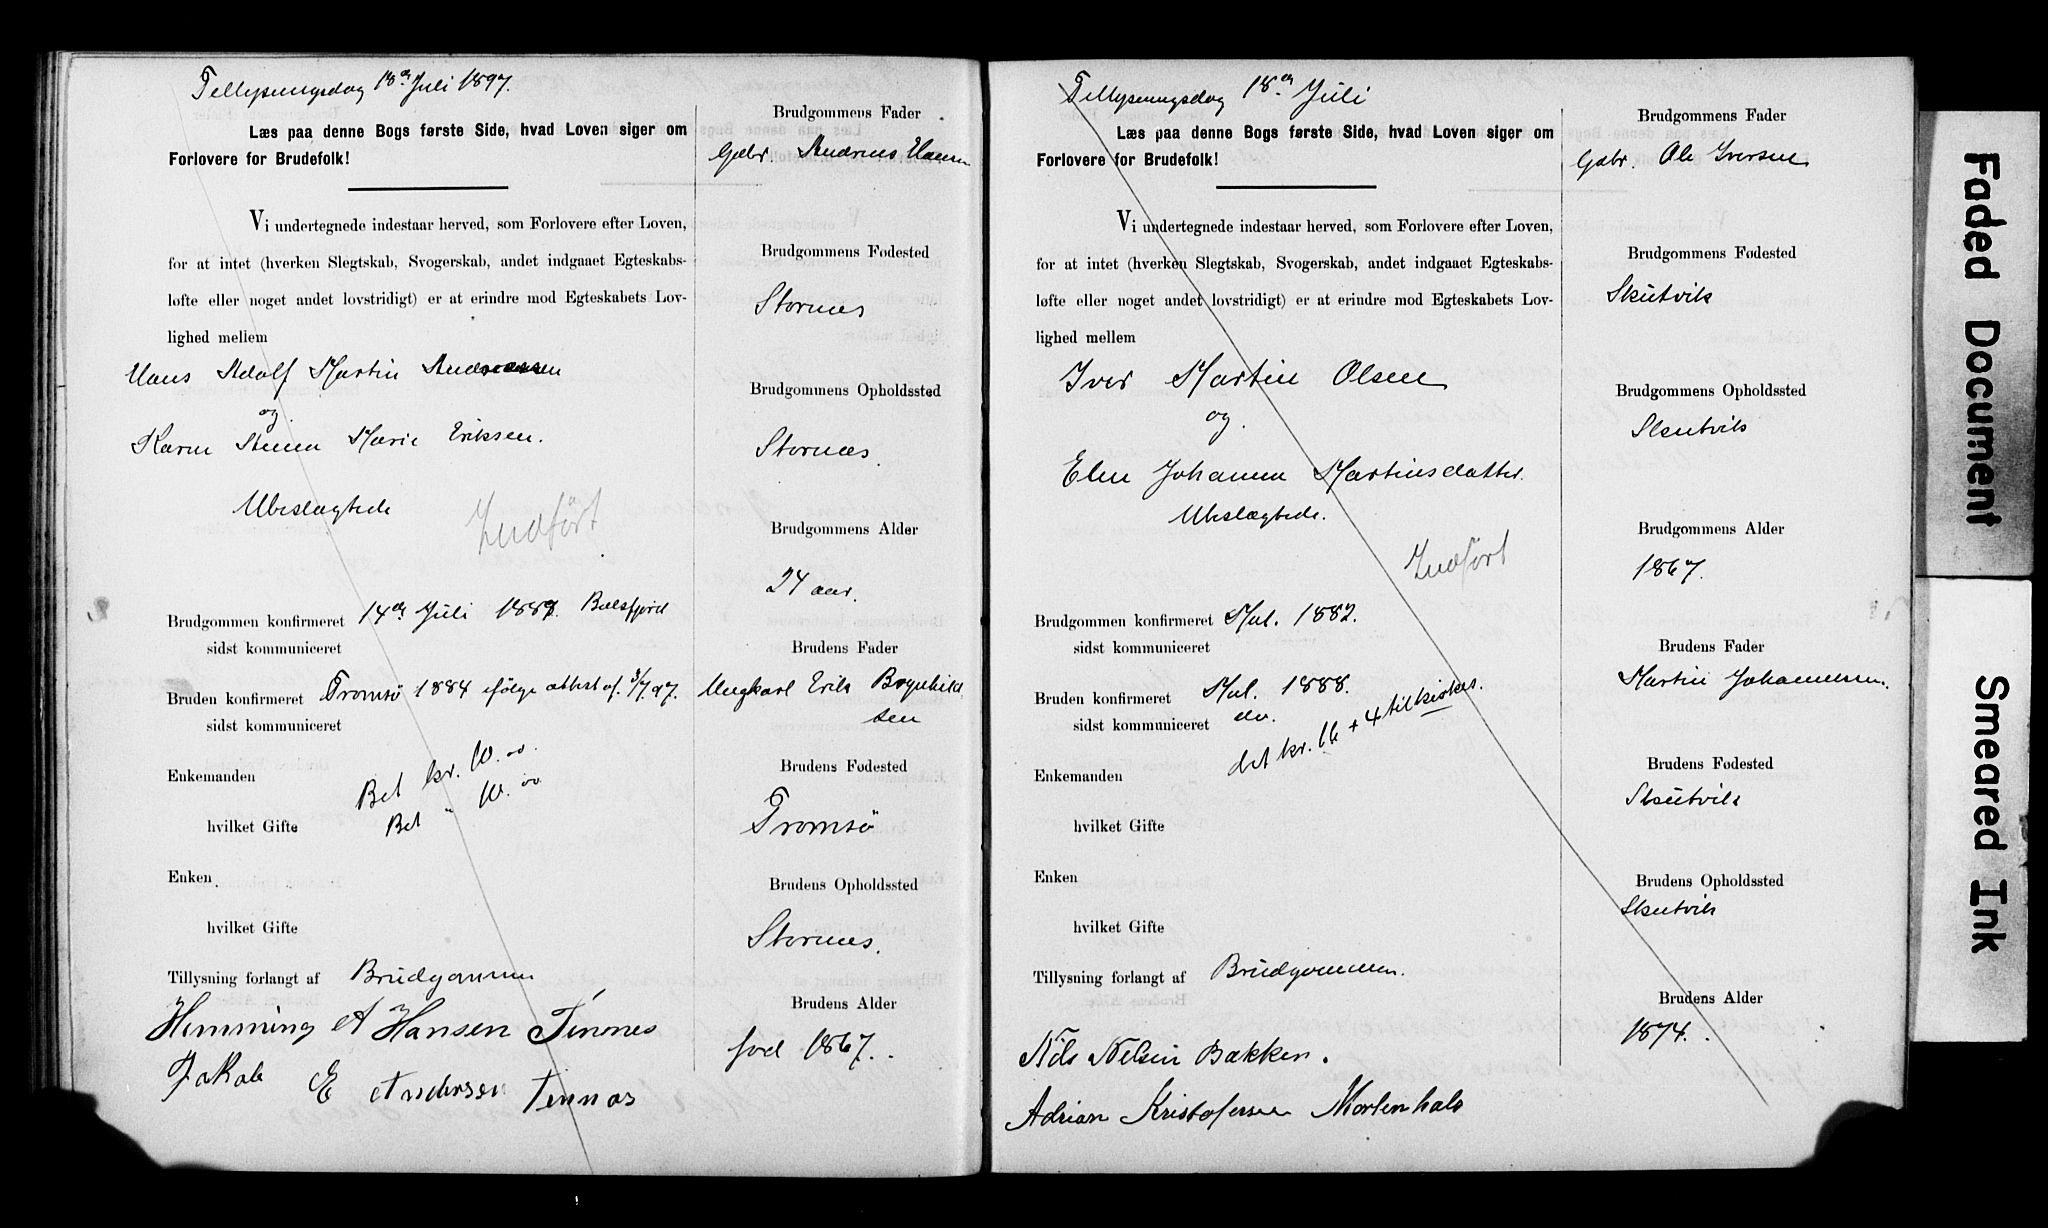 Tillysningsdag 18de Juli 1897.
Læs paa denne Bogs første Side, hvad Loven siger om
Forlovere for Brudefolk!
Vi undertegnede indestaar herved, som Forlovere efter Loven,
for at intet (hverken Slegtskab, Svogerskab, andet indgaaet Egteskabs-
løfte eller noget andet lovstridigt) er at erindre mod Egteskabets Lov-
lighed mellem
Hans Adolf Martin Andreassen
og
Karen Anna Marie Eriksen.
Ubeslægtede
Indført
Brudgommen konfirmeret 14de Juli 1889. Balsfjord
sidst kommuniceret
Bruden konfirmeret Tromsö 1884 ifølge attest af 3/7 97.
sidst kommuniceret
Enkemanden
Bet kr. 10.00
hvilket Gifte
Bet " 10.00
Enken
hvilket Gifte
Tillysning forlangt af Brudgommen
Hemming A Hansen Tennes
Jakob E Andersen Tennas
Brudgommens Fader
Gbr. Andreas Hansen
Brudgommens Fødested
Stornes
Brudgommens Opholdssted
Stornes.
Brudgommens Alder
24 aar.
Brudens Fader
Ungkarl Erik Brynhild
sen
Brudens Fødested
Tromsö
Brudens Opholdssted
Stornes.
Brudens Alder
fød 1867.
Tillysningsdag 18de Juli
Læs paa denne Bogs første Side, hvad Loven siger om
Forlovere for Brudefolk!
Vi undertegnede indestaar herved, som Forlovere efter Loven,
for at intet (hverken Slegtskab, Svogerskab, andet indgaaet Egteskabs-
løfte eller noget andet lovstridigt) er at erindre mod Egteskabets Lov-
lighed mellem
Iver Martin Olsen
og
Elen Johanna Martinsdatter.
Ubeslægtede.
Indført
Brudgommen konfirmeret Mal. 1882.
sidst kommuniceret
Bruden konfirmeret Mal. 1888.
sidst kommuniceret do.
bet kr. 16 + 4 til kirken.
Enkemanden
hvilket Gifte
Enken
hvilket Gifte
Tillysning forlangt af Brudgommen.
Nils Nelsen Bakken.
Adrian Kristofersen Mortenhals
Brudgommens Fader
Gbr. Ole Iversen
Brudgommens Fødested
Skutvik
Brudgommens Opholdssted
Skutvik
Brudgommens Alder
1867.
Brudens Fader
Martin Johannessen.
Brudens Fødested
Skutvik
Brudens Opholdssted
Skutvik
Brudens Alder
1874.
Faded Document
Smeared Ink